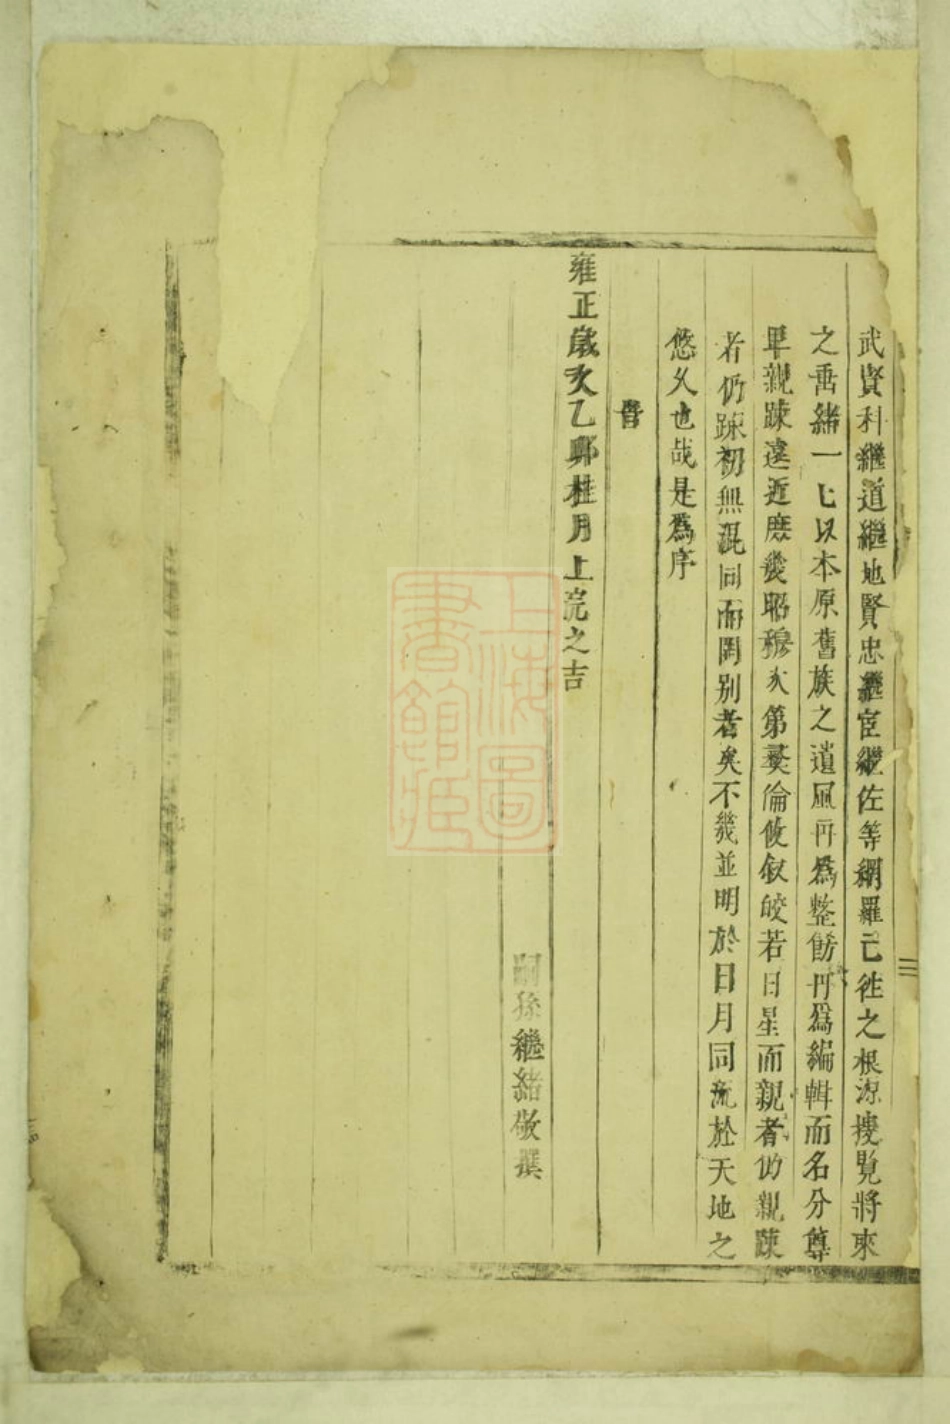 武賢科繼道繼地賢忠繼宦繼佐等網羅已徃之根源搜覽將來
之畨緒一七以本原舊族之遺風再爲整飭再爲編輯而名分尊
畢親踈遠近庶幾昭穆次第彜倫攸叙皎若日星而親者仍親踈
者仍踈初無混同而罔别者矣不幾並明於日月同流於天地之
悠久也哉是爲序
旹
雍正歲次乙卯桂月上浣之吉
嗣孫繼緒敬撰
上海圖書館藏